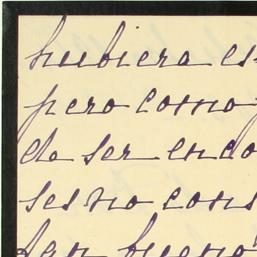 hubiera es
pero como
do ser en do
ses no cons
tan bueno